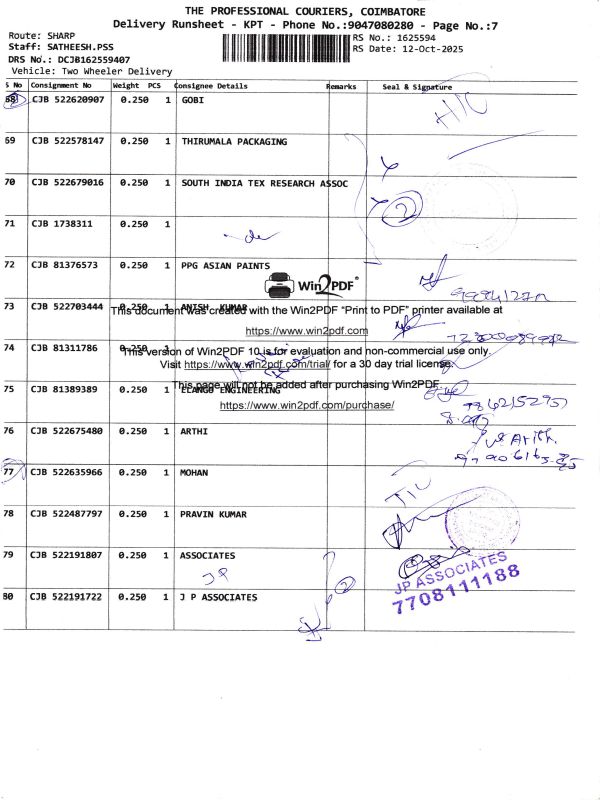 THE PROFESSIONAL COURIERS, COIMBATORE
Delivery Runsheet - KPT - Phone No.:9047080280 - Page No.:7
Route: SHARP
RS No.: 1625594
Staff: SATHEESH.PSS
RS Date: 12-Oct-2025
DRS No.: DCJB162559407
Vehicle: Two Wheeler Delivery
S No Consignment No Weight PCS Consignee Details Remarks Seal & Signature
68 CJB 522620907 0.250 1 GOBI
69 CJB 522578147 0.250 1 THIRUMALA PACKAGING
70 CJB 522679016 0.250 1 SOUTH INDIA TEX RESEARCH ASSOC
2
71 CJB 1738311 0.250 1
72 CJB 81376573 0.250 1 PPG ASIAN PAINTS
Win2PDF®
73 CJB 522703444 0.250 1 ANISH KUMAR
This document was created with the Win2PDF "Print to PDF" printer available at
https://www.win2pdf.com
74 CJB 81311786 0.250 1
This version of Win2PDF 10 is for evaluation and non-commercial use only.
Visit https://www.win2pdf.com/trial/ for a 30 day trial license.
75 CJB 81389389 0.250 1 ELANGO ENGINEERING
This page will not be added after purchasing Win2PDF.
https://www.win2pdf.com/purchase/
76 CJB 522675480 0.250 1 ARTHI
77 CJB 522635966 0.250 1 MOHAN
78 CJB 522487797 0.250 1 PRAVIN KUMAR
79 CJB 522191807 0.250 1 ASSOCIATES
JP
JP ASSOCIATES
7708111188
80 CJB 522191722 0.250 1 J P ASSOCIATES
2